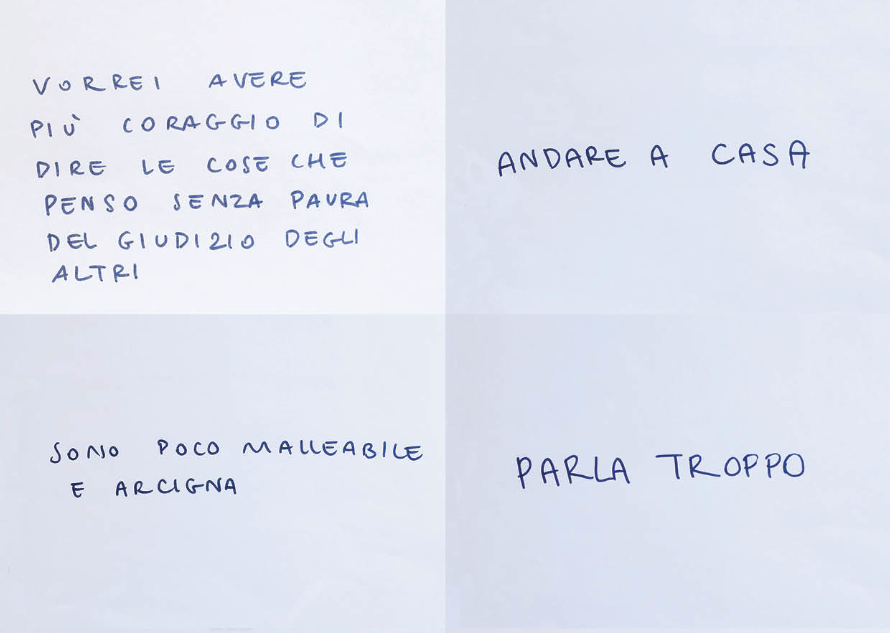 VORREI AVERE
PIÙ CORAGGIO DI
DIRE LE COSE CHE
PENSO SENZA PAURA
DEL GIUDIZIO DEGLI
ALTRI
ANDARE A CASA
SONO POCO MALLEABILE
E ARCIGNA
PARLA TROPPO